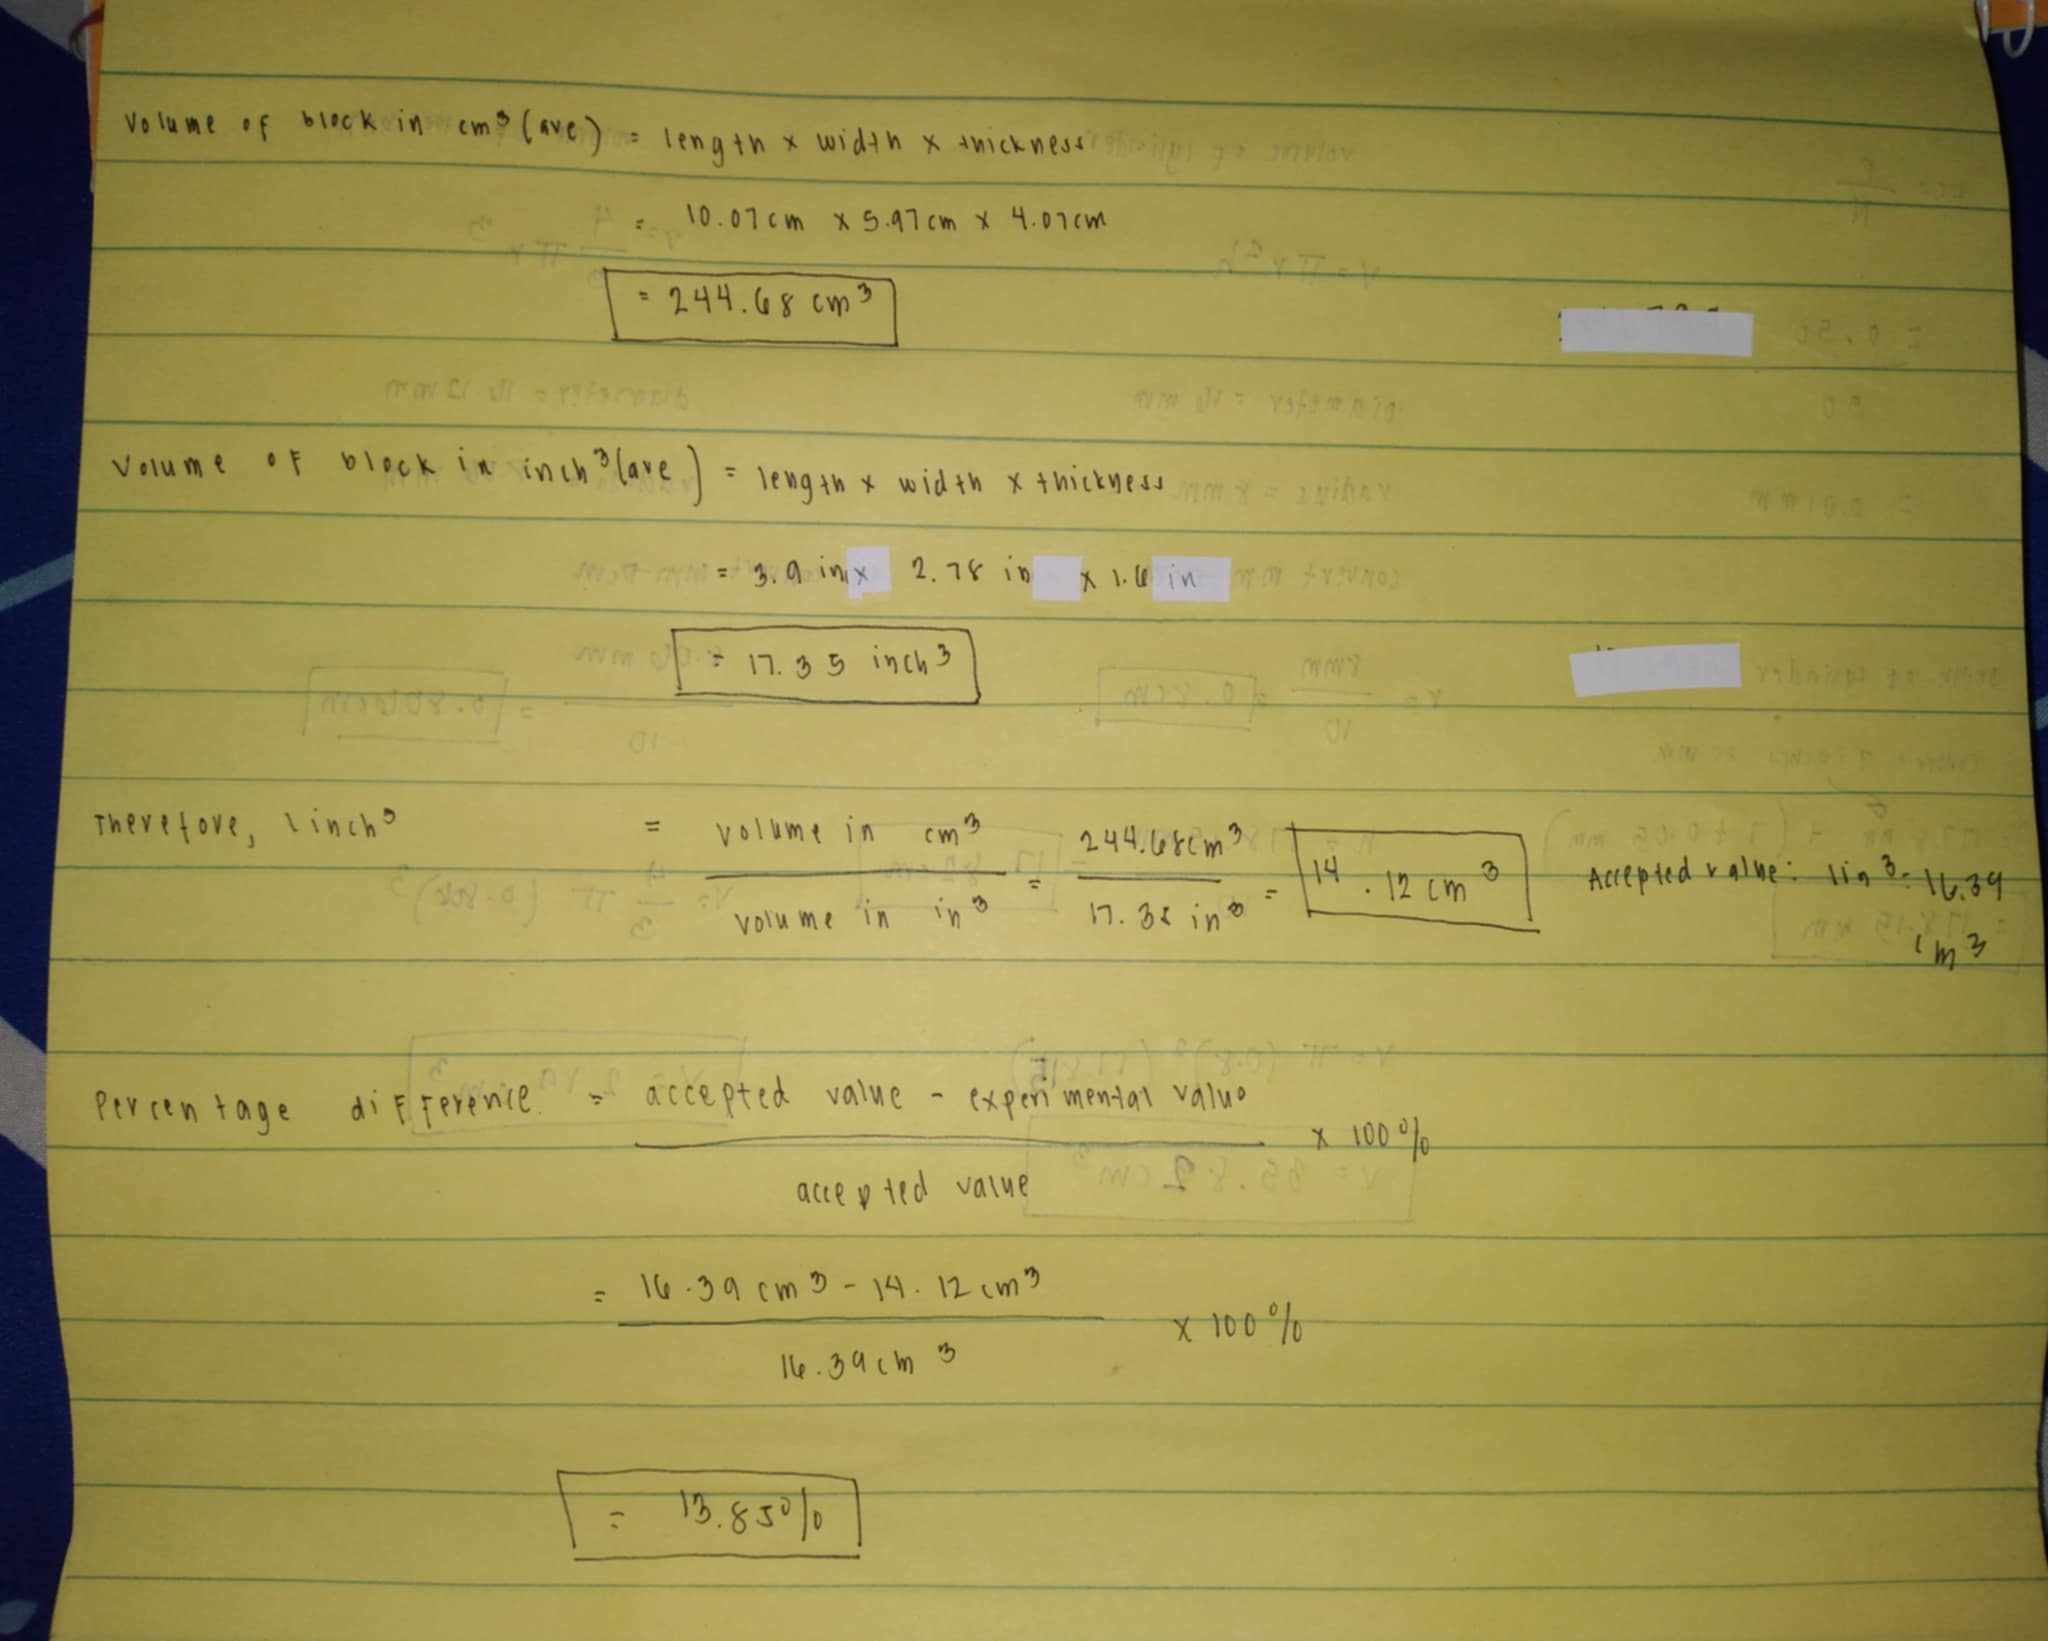 Volume of block in cm³ (ave) = length x width x thickness
= 10.07cm x 5.97cm x 4.07cm
= 244.68 cm³
Volume of block in inch³ (ave) = length x width x thickness
= 3.9 in x 2.78 in x 1.6 in
= 17.35 inch³
Therefore, 1 inch³ = volume in cm³ / volume in in³ = 244.68cm³ / 17.35 in³ = 14.12 cm³ Accepted value: 1in³ = 16.39 cm³
Percentage difference = accepted value - experimental value / accepted value x 100%
= 16.39 cm³ - 14.12 cm³ / 16.39 cm³ x 100%
= 13.85%